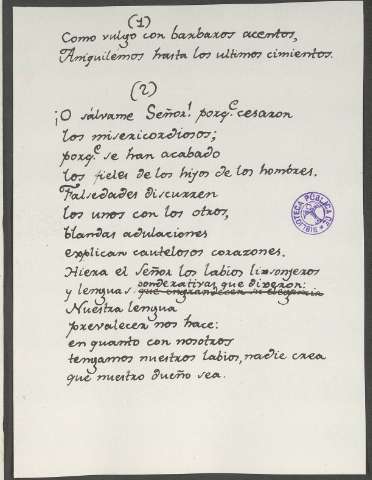 (1)
Como vulgo con barbaros acentos,
Aniquilemos hasta los ultimos cimientos.
(2)
¡O sálvame Señor! porq.ᵉ cesaron
los misericordiosos;
porq.ᵉ se han acabado
los fieles de los hijos de los hombres.
Falsedades discurren
los unos con los otros,
blandas adulaciones
explican cautelosos corazones.
Hiera el Señor los labios lisonjeros
y lenguas que dixeron:
Nuestra lengua
prevalecer nos hace:
en quanto con nosotros
tengamos nuestros labios, nadie crea
que nuestro dueño sea.
BIBLIOTECA PÚBLICA
1816